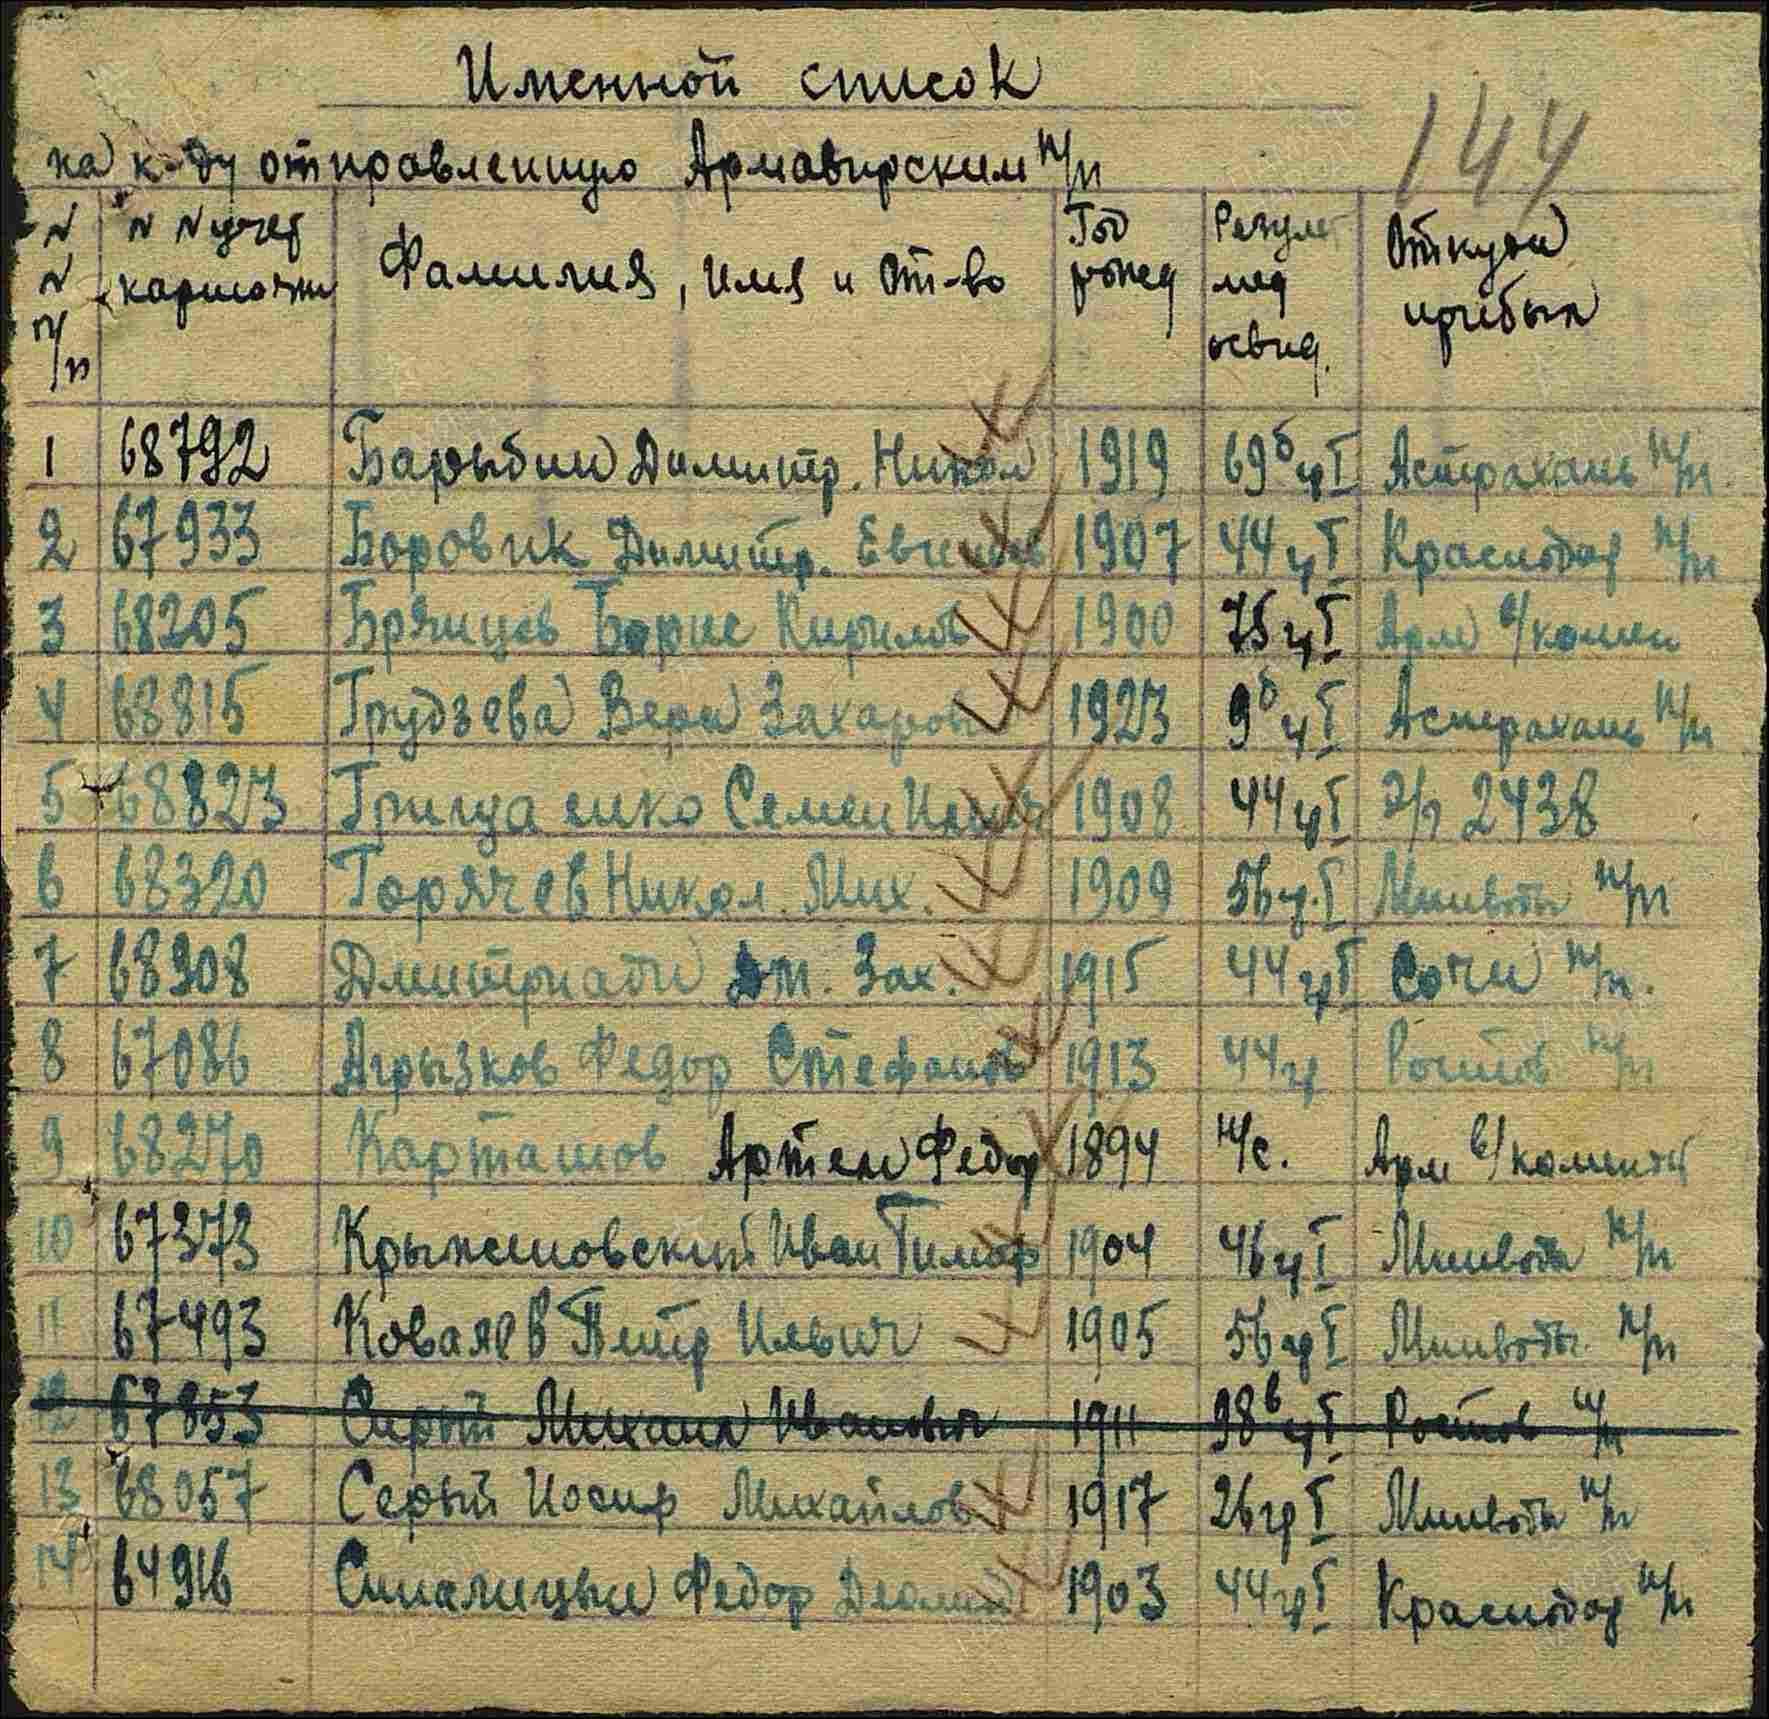 Именной список
144
на к-ду отправленную Армавирским п/п
N N п/п
N N учет карточки
Фамилия, имя и от-во
Год рожд
Резуль мед освид.
Откуда прибыл
1 68792 Барыбин Димитр. Никол 1919 69б гр I Астрахань п/п.
2 67933 Боровик Димитр. Евгенов 1907 44 гр I Краснодар п/п
3 68205 Брянцев Борис Кирилов 1900 75 гр I Арм в/комен
4 68815 Грудзева Вера Захаров 1923 9б гр I Астрахань п/п
5 68823 Грицаенко Семен Ильич 1908 44 гр I э/г 2438
6 68320 Горячев Никол. Мих. 1909 56 гр. I Минводы п/п
7 68308 Дмитриади Дм. Зах. 1915 44 гр I Сочи п/п.
8 67086 Агрызков Федор Стефанов 1913 44 гр Ростов п/п
9 68270 Карташов Артем Федор 1894 н/с. Арм в/комендат
10 67373 Крыжановский Иван Тимоф 1904 46 гр I Минводы п/п
11 67493 Ковалев Петр Ильич 1905 56 гр I Минводы п/п
12 67853 Сирый Михаил Иванович 1911 98в гр I Ростов п/п
13 68057 Серый Иосиф Михайлов 1917 26 гр I Минводы п/п
14 64916 Федор 1903 44 гр I Краснодар п/п